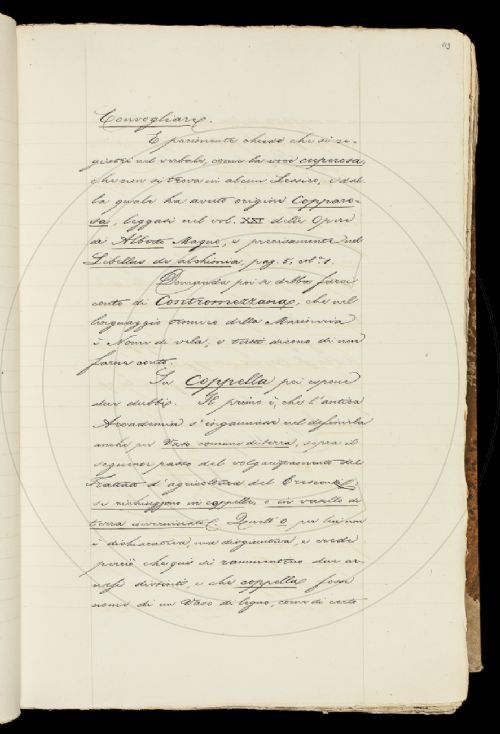 119
Convogliare.
E parimente chiede che si re-
gistri nel verbale, come la voce cuperosa,
che non si trova in alcun Lessico, e dal-
la quale ha avuto origine Copparo-
sa, leggasi nel vol. XXI delle Opere
di Alberto Magno, e precisamente nel
Libellus de alchimia, pag. 5, col. 1.
Domanda poi se debba farsi
conto di Contromezzana, che nel
linguaggio tecnico della Marineria
è Nome di vela, e tutti dicono di non
farne conto.
Su Coppella poi espone
due dubbi. Il primo è, che l'antica
Accademia s'ingannasse nel definirla
anche per Vaso comune di terra, sopra il
seguente passo del volgarizzamento del
Trattato d'agricoltura del Crescenzi
si richiuggono in coppelle, o in vasello di
terra invetriato. Quell'o per lui non
è dichiarativa ma disgiuntiva, e crede
perciò che qui si rammentino due ar-
nesi distinti e che coppella fosse
nome di un Vaso di legno, come di certo